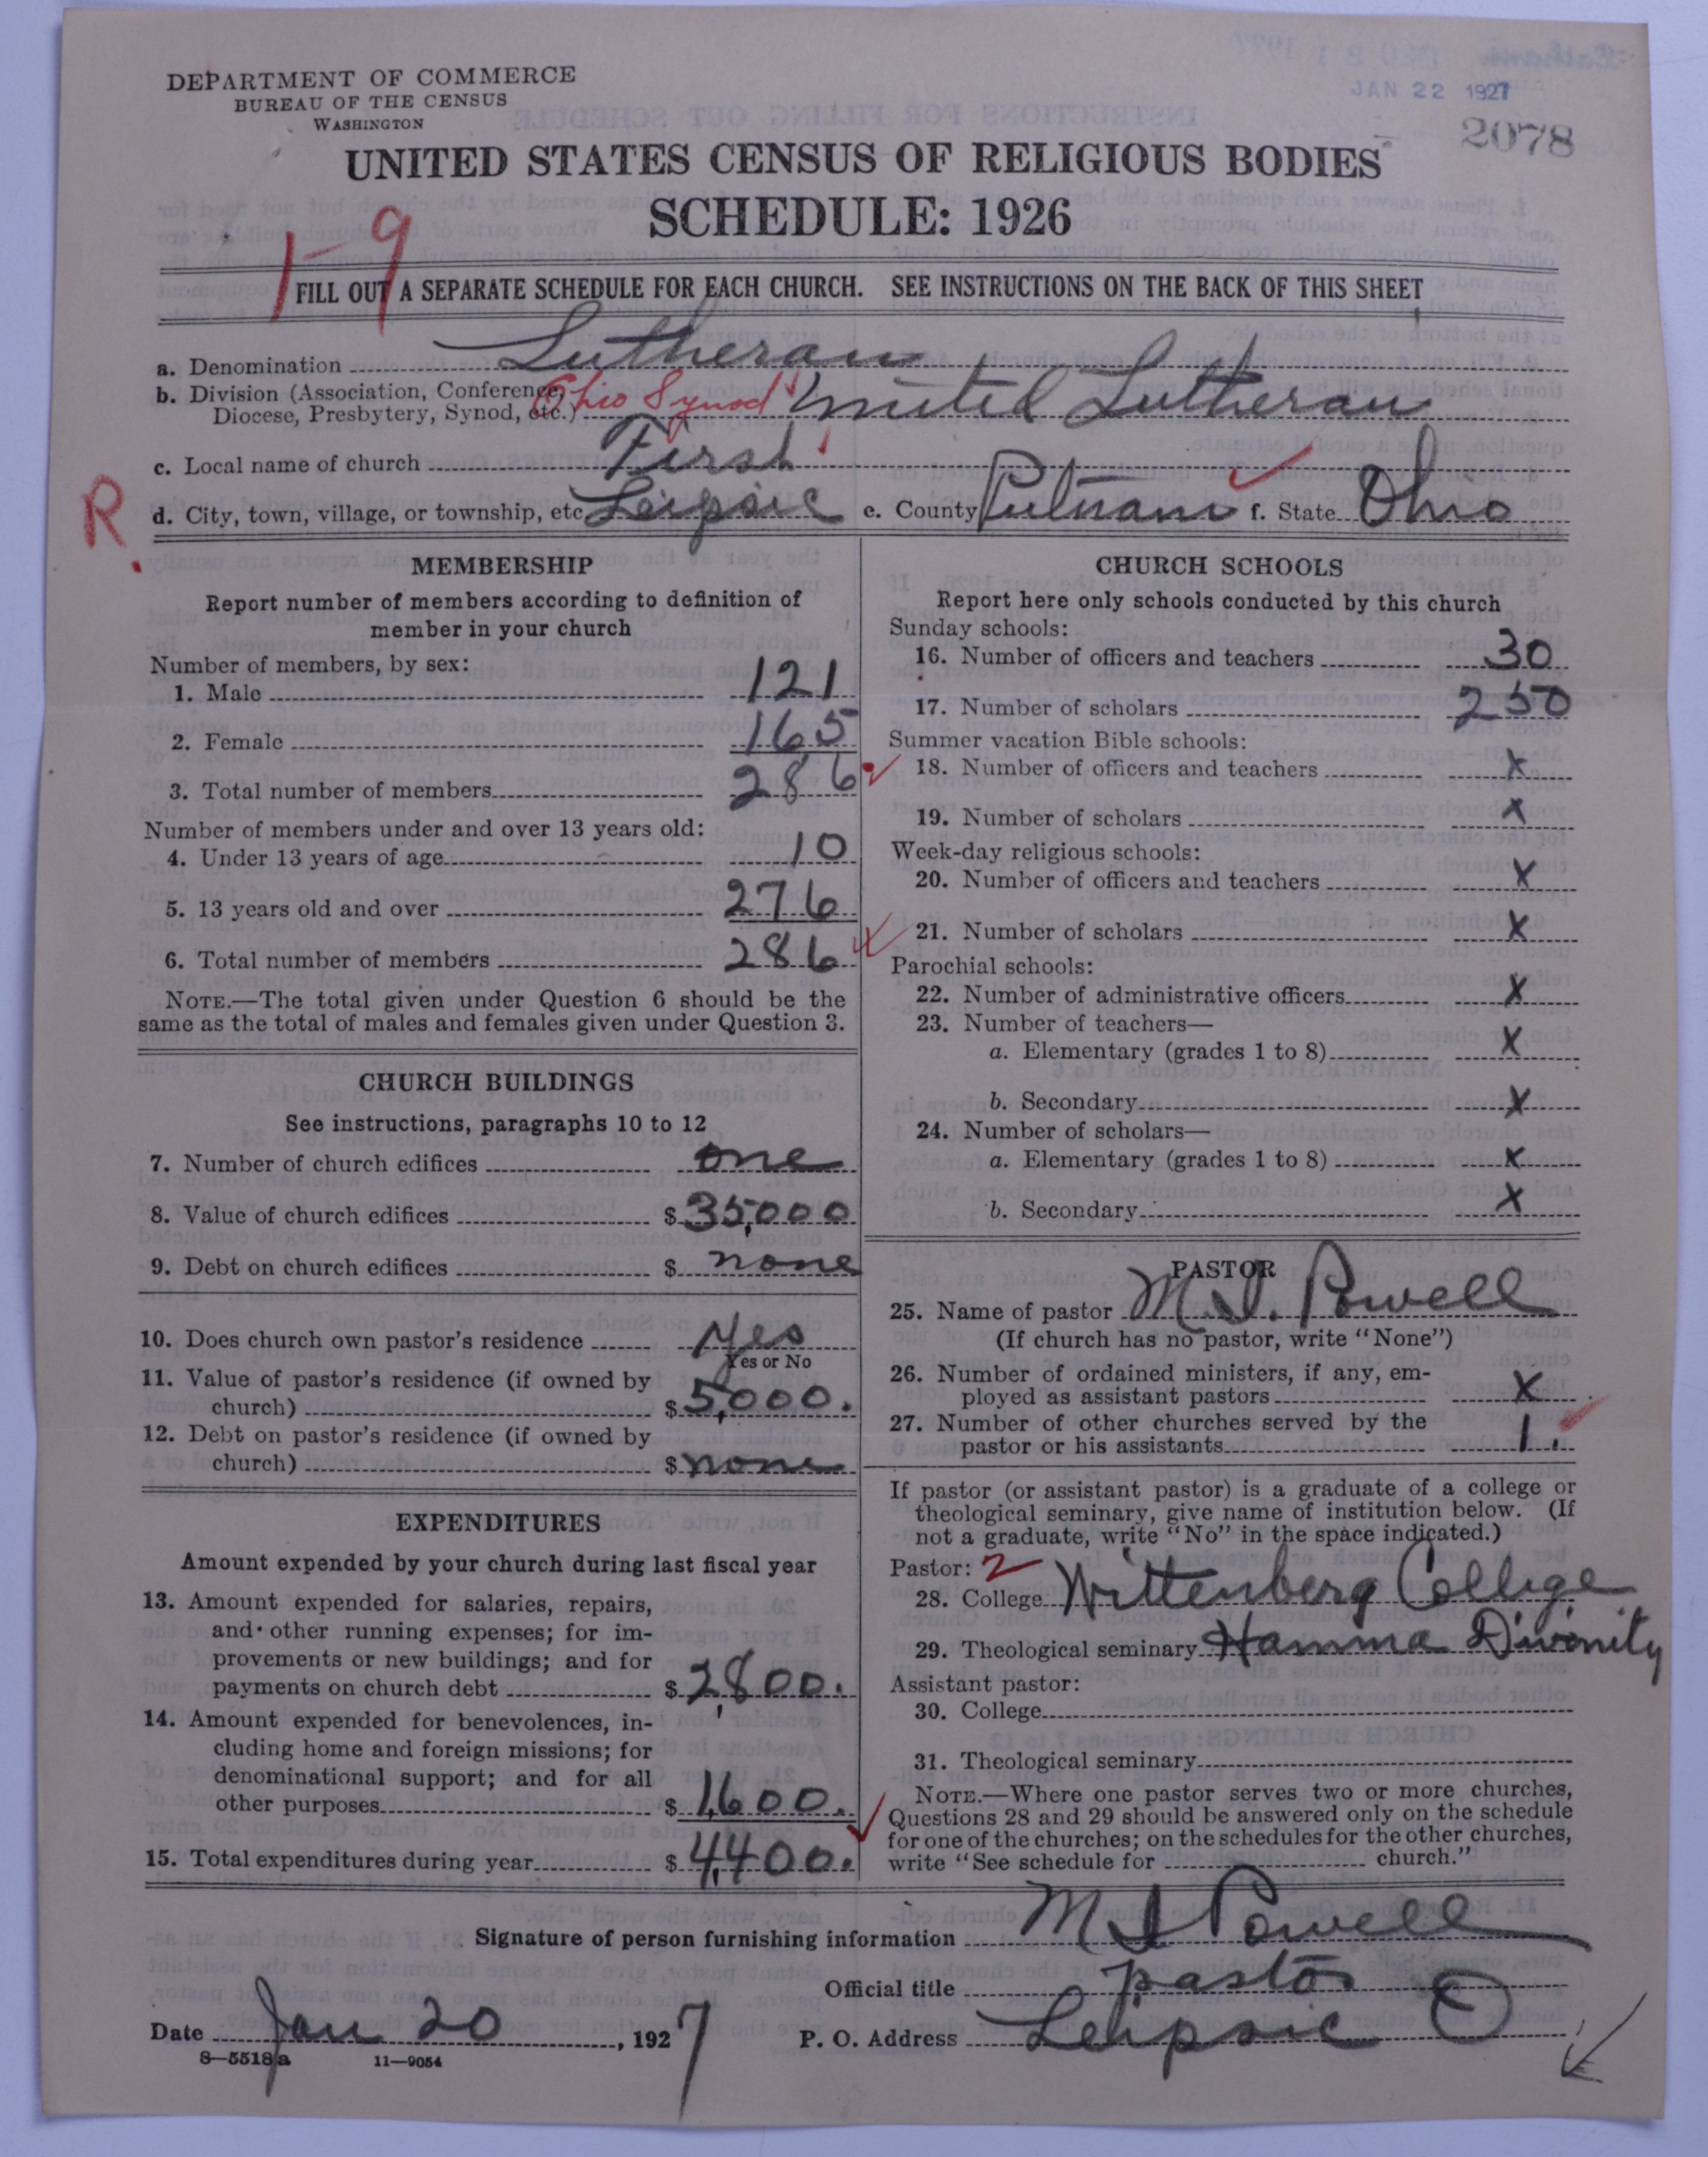 DEPARTMENT OF COMMERCE
BUREAU OF THE CENSUS
WASHINGTON
JAN 22 1927
2078
UNITED STATES CENSUS OF RELIGIOUS BODIES
SCHEDULE: 1926
1-9
FILL OUT A SEPARATE SCHEDULE FOR EACH CHURCH. SEE INSTRUCTIONS ON THE BACK OF THIS SHEET
a. Denomination Lutheran
b. Division (Association, Conference,
Diocese, Presbytery, Synod, etc.) Ohio Synod United Lutheran
c. Local name of church First
R.
d. City, town, village, or township, etc Leipsic e. County Putnam f. State Ohio
MEMBERSHIP
Report number of members according to definition of
member in your church
Number of members, by sex:
1. Male 121
2. Female 165
3. Total number of members 286
Number of members under and over 13 years old:
4. Under 13 years of age 10
5. 13 years old and over 276
6. Total number of members 286
NOTE.—The total given under Question 6 should be the
same as the total of males and females given under Question 3.
CHURCH BUILDINGS
See instructions, paragraphs 10 to 12
7. Number of church edifices one
8. Value of church edifices $ 35,000
9. Debt on church edifices $ none
10. Does church own pastor's residence Yes
Yes or No
11. Value of pastor's residence (if owned by
church) $ 5,000.
12. Debt on pastor's residence (if owned by
church) $ none
EXPENDITURES
Amount expended by your church during last fiscal year
13. Amount expended for salaries, repairs,
and other running expenses; for im-
provements or new buildings; and for
payments on church debt $ 2,800.
14. Amount expended for benevolences, in-
cluding home and foreign missions; for
denominational support; and for all
other purposes $ 1,600.
15. Total expenditures during year $ 4,400.
CHURCH SCHOOLS
Report here only schools conducted by this church
Sunday schools:
16. Number of officers and teachers 30
17. Number of scholars 250
Summer vacation Bible schools:
18. Number of officers and teachers X
19. Number of scholars X
Week-day religious schools:
20. Number of officers and teachers X
21. Number of scholars X
Parochial schools:
22. Number of administrative officers X
23. Number of teachers—
a. Elementary (grades 1 to 8) X
b. Secondary X
24. Number of scholars—
a. Elementary (grades 1 to 8) X
b. Secondary X
PASTOR
25. Name of pastor M. I. Powell
(If church has no pastor, write "None")
26. Number of ordained ministers, if any, em-
ployed as assistant pastors X
27. Number of other churches served by the
pastor or his assistants 1.
If pastor (or assistant pastor) is a graduate of a college or
theological seminary, give name of institution below. (If
not a graduate, write "No" in the space indicated.)
Pastor: 2
28. College Wittenberg College
29. Theological seminary Hamma Divinity
Assistant pastor:
30. College
31. Theological seminary
NOTE.—Where one pastor serves two or more churches,
Questions 28 and 29 should be answered only on the schedule
for one of the churches; on the schedules for the other churches,
write "See schedule for church."
Signature of person furnishing information M I Powell
Official title pastor
Date Jan 20, 1927 P. O. Address Leipsic O
8—5518a 11—9054